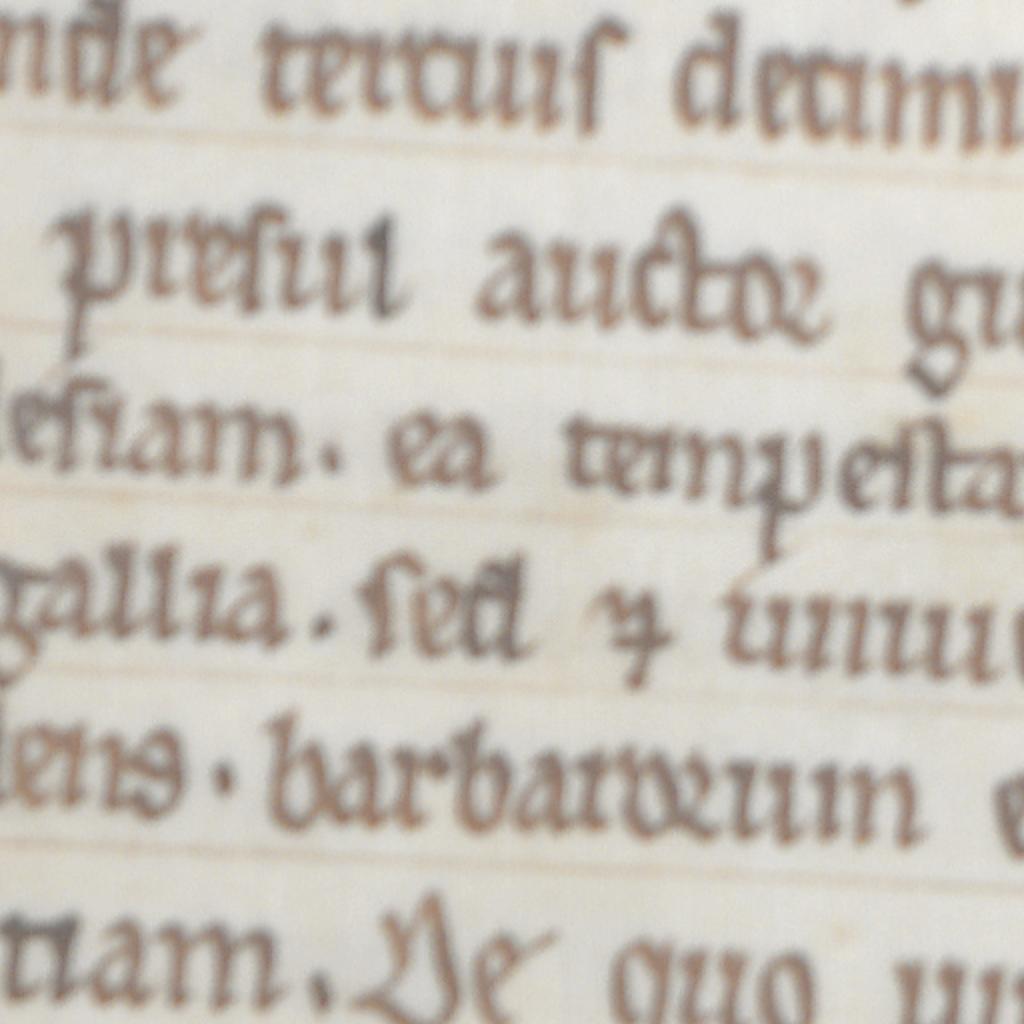 nde tercius decimu
presul auctor gu
lesiam. ea tempesta
gallia. sed ⁊ uniu
dens. barbarorum e
tiam. De quo un